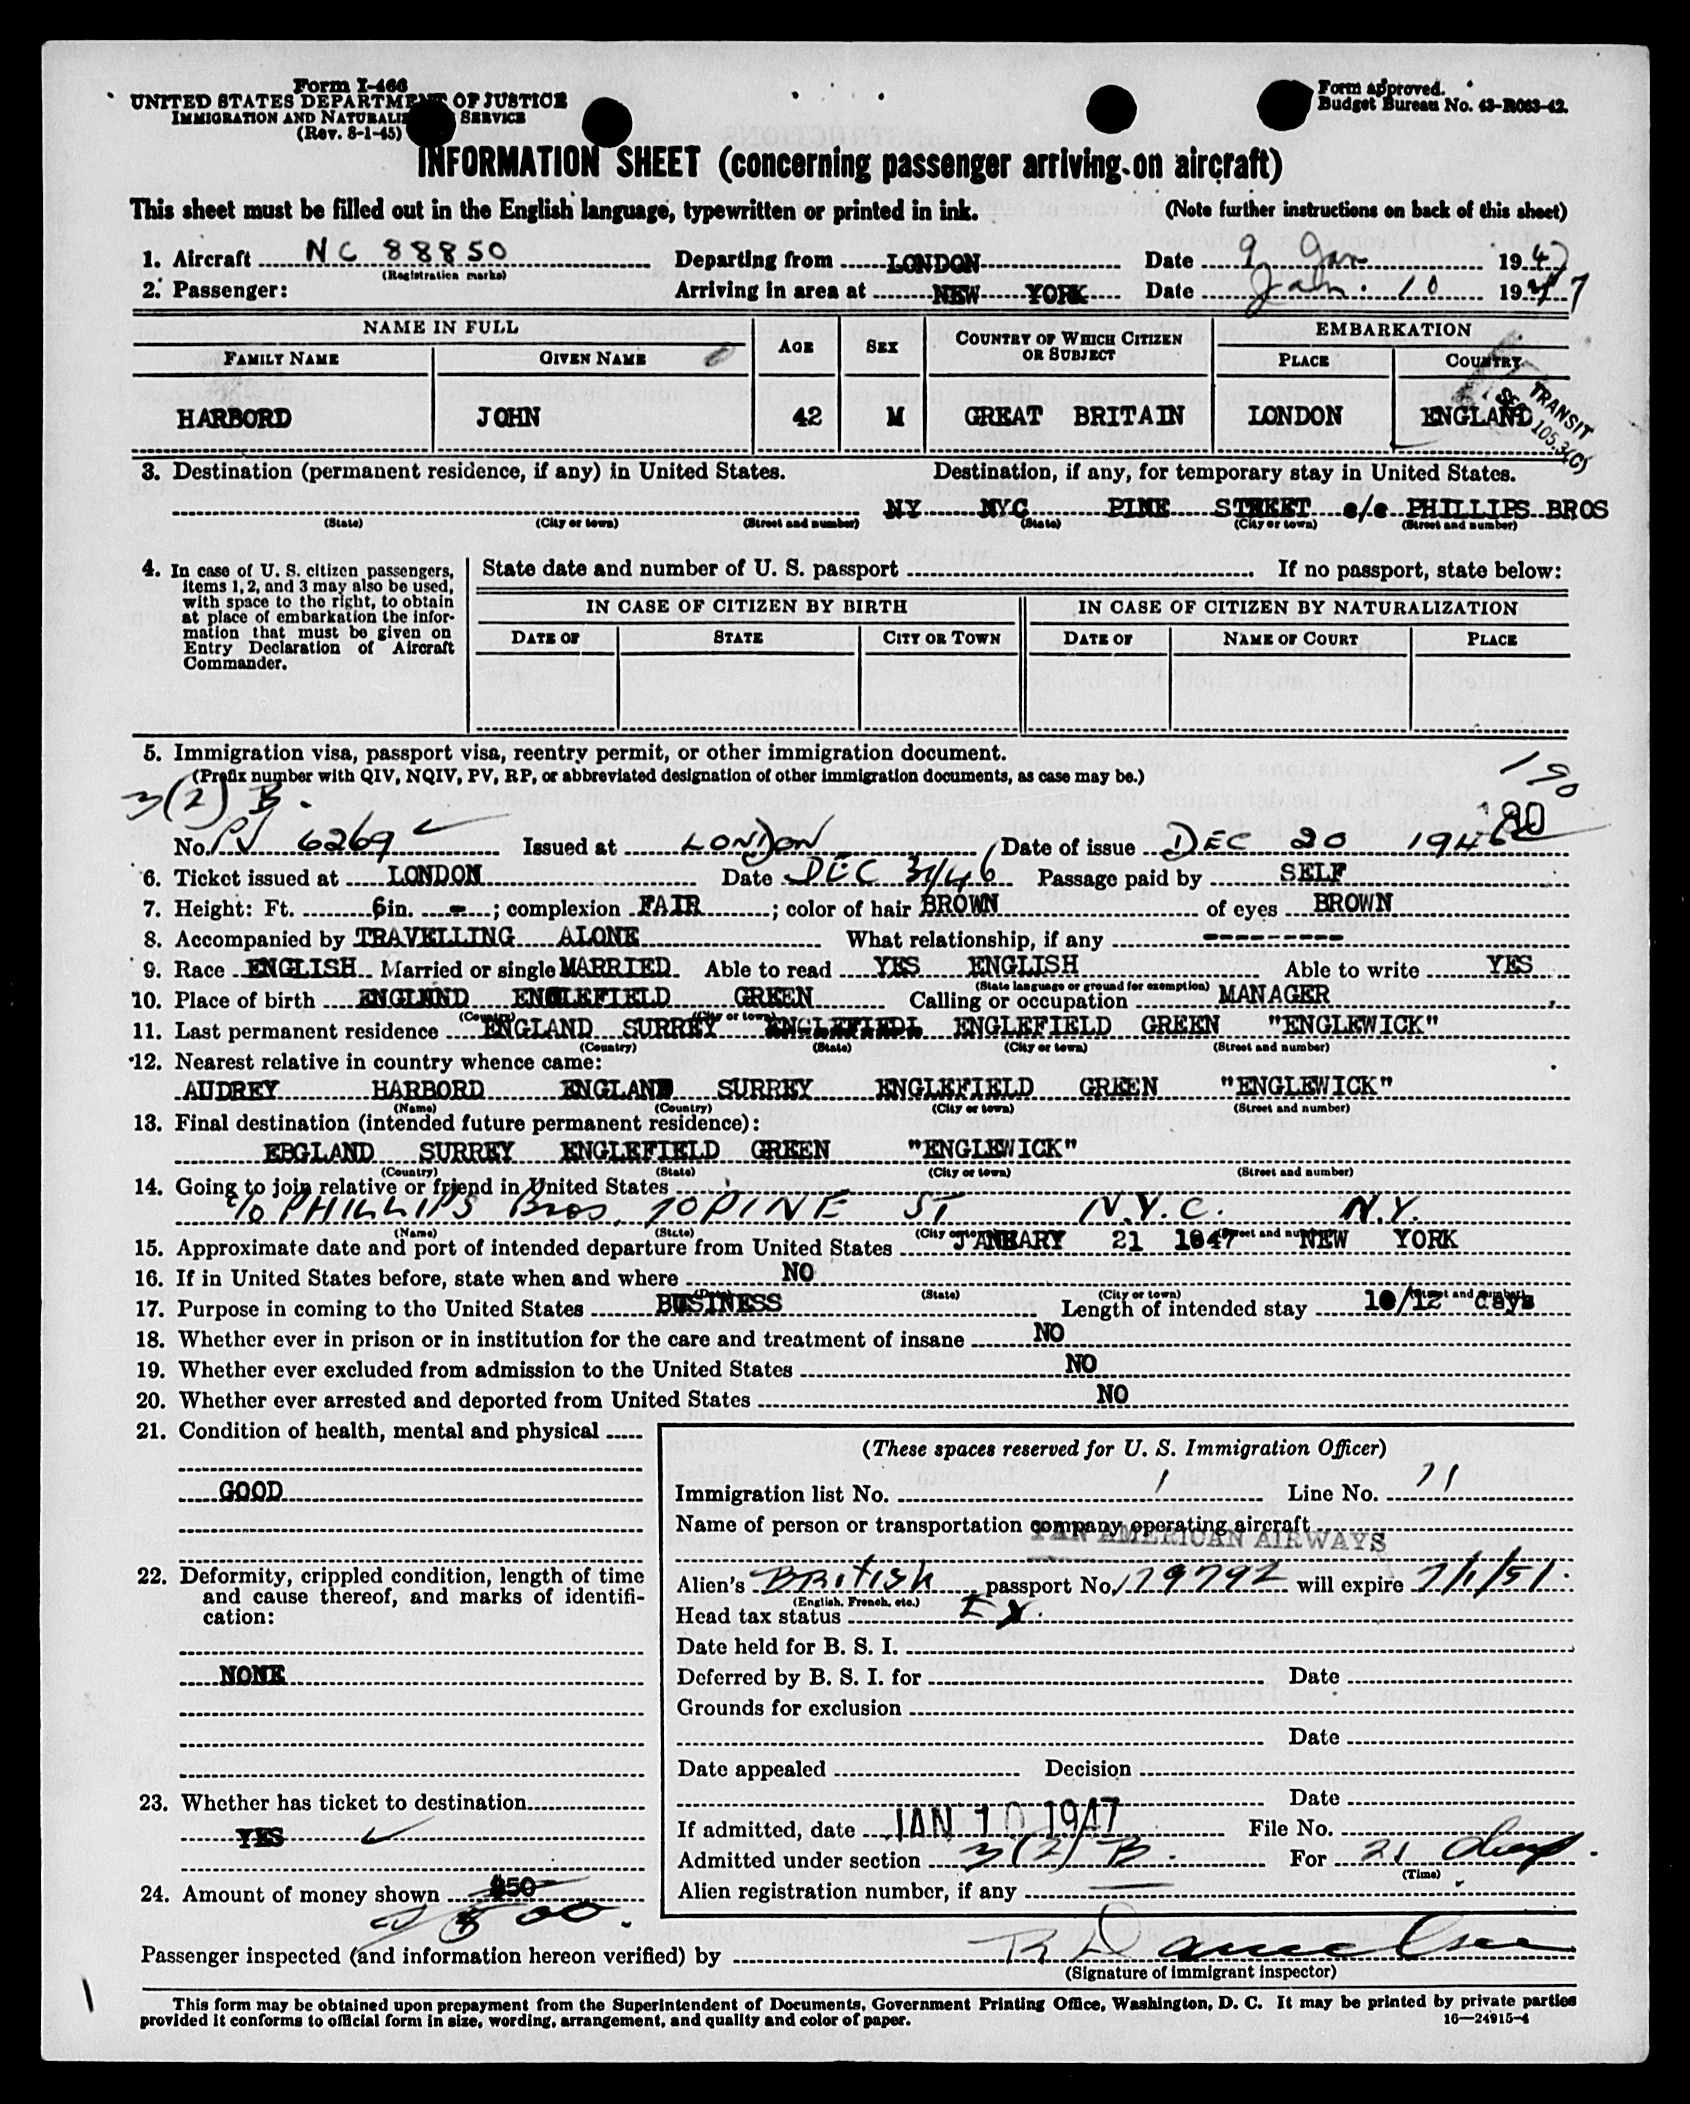 Form I-466
UNITED STATES DEPARTMENT OF JUSTICE
IMMIGRATION AND NATURALI SERVICE
(Rev. 8-1-45)
Form approved.
Budget Bureau No. 43-R063-42.
INFORMATION SHEET (concerning passenger arriving on aircraft)
This sheet must be filled out in the English language, typewritten or printed in ink. (Note further instructions on back of this sheet)
1. Aircraft NC 88850 Departing from LONDON Date 9 Jan 1947
(Registration marks)
2. Passenger: Arriving in area at NEW YORK Date Jan. 10 1947
NAME IN FULL AGE SEX COUNTRY OF WHICH CITIZEN OR SUBJECT EMBARKATION
FAMILY NAME GIVEN NAME PLACE COUNTRY
TRANSIT
SEC 105.3(C)
HARBORD JOHN 42 M GREAT BRITAIN LONDON ENGLAND
3. Destination (permanent residence, if any) in United States. Destination, if any, for temporary stay in United States.
NY NYC PINE STREET c/o PHILLIPS BROS
(State) (City or town) (Street and number) (State) (City or town) (Street and number)
4. In case of U. S. citizen passengers, items 1, 2, and 3 may also be used, with space to the right, to obtain at place of embarkation the information that must be given on Entry Declaration of Aircraft Commander.
State date and number of U. S. passport If no passport, state below:
IN CASE OF CITIZEN BY BIRTH IN CASE OF CITIZEN BY NATURALIZATION
DATE OF STATE CITY OR TOWN DATE OF NAME OF COURT PLACE
5. Immigration visa, passport visa, reentry permit, or other immigration document.
(Prefix number with QIV, NQIV, PV, RP, or abbreviated designation of other immigration documents, as case may be.)
3(2) B.
No. PV 6269 Issued at LONDON Date of issue DEC 20 1946
6. Ticket issued at LONDON Date DEC 31/46 Passage paid by SELF
7. Height: Ft. 6 in. - ; complexion FAIR ; color of hair BROWN of eyes BROWN
8. Accompanied by TRAVELLING ALONE What relationship, if any ---------
9. Race ENGLISH Married or single MARRIED Able to read YES ENGLISH Able to write YES
(State language or ground for exemption)
10. Place of birth ENGLAND ENGLEFIELD GREEN Calling or occupation MANAGER
(Country) (City or town)
11. Last permanent residence ENGLAND SURREY ENGLEFIEDL ENGLEFIELD GREEN "ENGLEWICK"
(Country) (State) (City or town) (Street and number)
12. Nearest relative in country whence came:
AUDREY HARBORD ENGLAND SURREY ENGLEFIELD GREEN "ENGLEWICK"
(Name) (Country) (City or town) (Street and number)
13. Final destination (intended future permanent residence):
EBGLAND SURREY ENGLEFIELD GREEN "ENGLEWICK"
(Country) (State) (City or town) (Street and number)
14. Going to join relative or friend in United States
c/o PHILLIPS Bros. 70 PINE ST N.Y.C. N.Y.
(Name) (State) (City or town) (Street and number)
15. Approximate date and port of intended departure from United States JANUARY 21 1947 NEW YORK
16. If in United States before, state when and where NO
(Date) (State) (City or town) (Street and number)
17. Purpose in coming to the United States BUSINESS Length of intended stay 10/12 days
18. Whether ever in prison or in institution for the care and treatment of insane NO
19. Whether ever excluded from admission to the United States NO
20. Whether ever arrested and deported from United States NO
21. Condition of health, mental and physical
GOOD
22. Deformity, crippled condition, length of time and cause thereof, and marks of identification:
NONE
23. Whether has ticket to destination
YES
24. Amount of money shown $50
500.
(These spaces reserved for U. S. Immigration Officer)
Immigration list No. 1 Line No. 71
Name of person or transportation company operating aircraft
PAN AMERICAN AIRWAYS
Alien's British passport No. 179792 will expire 7/1/51.
(English, French, etc.)
Head tax status Ex.
Date held for B. S. I.
Deferred by B. S. I. for Date
Grounds for exclusion
Date
Date appealed Decision
Date
If admitted, date JAN 10 1947 File No.
Admitted under section 3(2) B. For 21 days.
(Time)
Alien registration number, if any
Passenger inspected (and information hereon verified) by
(Signature of immigrant inspector)
This form may be obtained upon prepayment from the Superintendent of Documents, Government Printing Office, Washington, D. C. It may be printed by private parties
provided it conforms to official form in size, wording, arrangement, and quality and color of paper.
16—24915-4